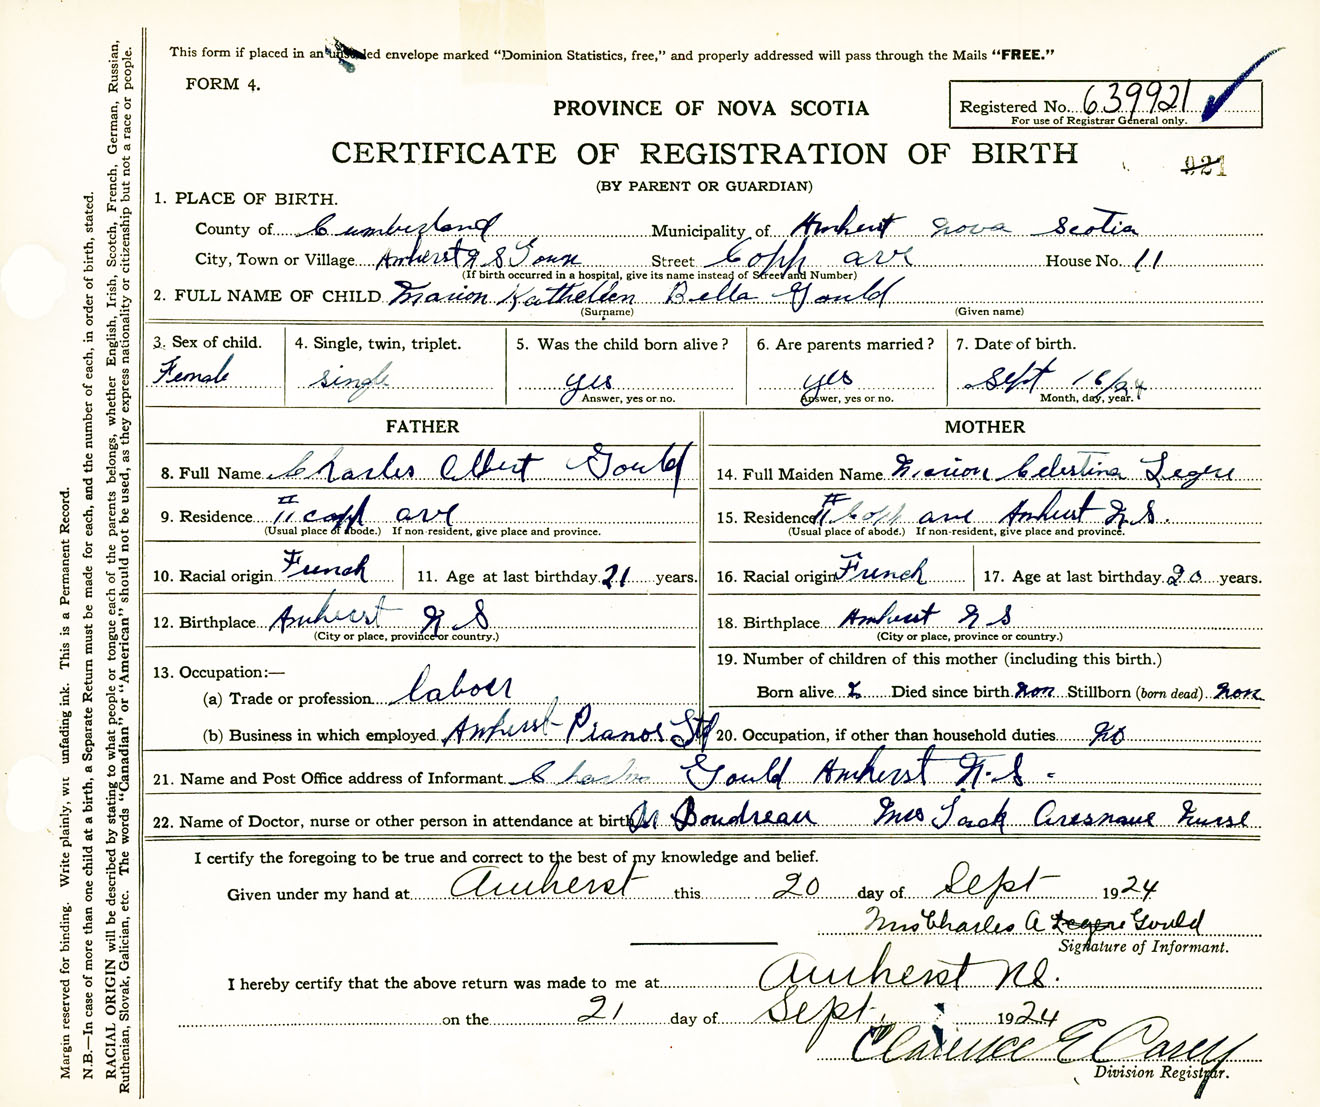 This form if placed in an unsealed envelope marked "Dominion Statistics, free," and properly addressed will pass through the Mails "FREE."
FORM 4.
Registered No. 639921
For use of Registrar General only.
PROVINCE OF NOVA SCOTIA
CERTIFICATE OF REGISTRATION OF BIRTH
921
(BY PARENT OR GUARDIAN)
1. PLACE OF BIRTH.
County of Cumberland Municipality of Amherst Nova Scotia
City, Town or Village Amherst N S Town Street Copp ave House No. 11
(If birth occurred in a hospital, give its name instead of Street and Number)
2. FULL NAME OF CHILD Marion Kathelien Bella Gould
(Surname) (Given name)
3. Sex of child. 4. Single, twin, triplet. 5. Was the child born alive? 6. Are parents married? 7. Date of birth.
Female single yes yes Sept 16/24
Answer, yes or no. Answer, yes or no. Month, day, year.
FATHER MOTHER
8. Full Name Charles Albert Gould 14. Full Maiden Name Marion Celestina Legere
9. Residence # 11 Copp ave 15. Residence # 11 Copp ave Amherst N.S.
(Usual place of abode.) If non-resident, give place and province. (Usual place of abode.) If non-resident, give place and province.
10. Racial origin French 11. Age at last birthday 21 years. 16. Racial origin French 17. Age at last birthday 20 years.
12. Birthplace Amherst N S 18. Birthplace Amherst N S
(City or place, province or country.) (City or place, province or country.)
13. Occupation:— 19. Number of children of this mother (including this birth.)
(a) Trade or profession labour Born alive Died since birth non Stillborn (born dead) non
(b) Business in which employed Amherst Pianos Ltd 20. Occupation, if other than household duties no
21. Name and Post Office address of Informant Charles Gould Amherst N.S.
22. Name of Doctor, nurse or other person in attendance at birth Boudreau Mrs Jack Nurse
I certify the foregoing to be true and correct to the best of my knowledge and belief.
Given under my hand at Amherst this 20 day of Sept 1924
Mrs Charles A Legere Gould
Signature of Informant.
I hereby certify that the above return was made to me at Amherst NS.
on the 21 day of Sept. 1924
Clarence E Carey
Division Registrar.
Margin reserved for binding. Write plainly, with unfading ink. This is a Permanent Record.
N.B.—In case of more than one child at a birth, a Separate Return must be made for each, and the number of each, in order of birth, stated.
RACIAL ORIGIN will be described by stating to what people or tongue each of the parents belongs, whether English, Irish, Scotch, French, German, Russian,
Ruthenian, Slovak, Galician, etc. The words "Canadian" or "American" should not be used, as they express nationality or citizenship but not a race or people.